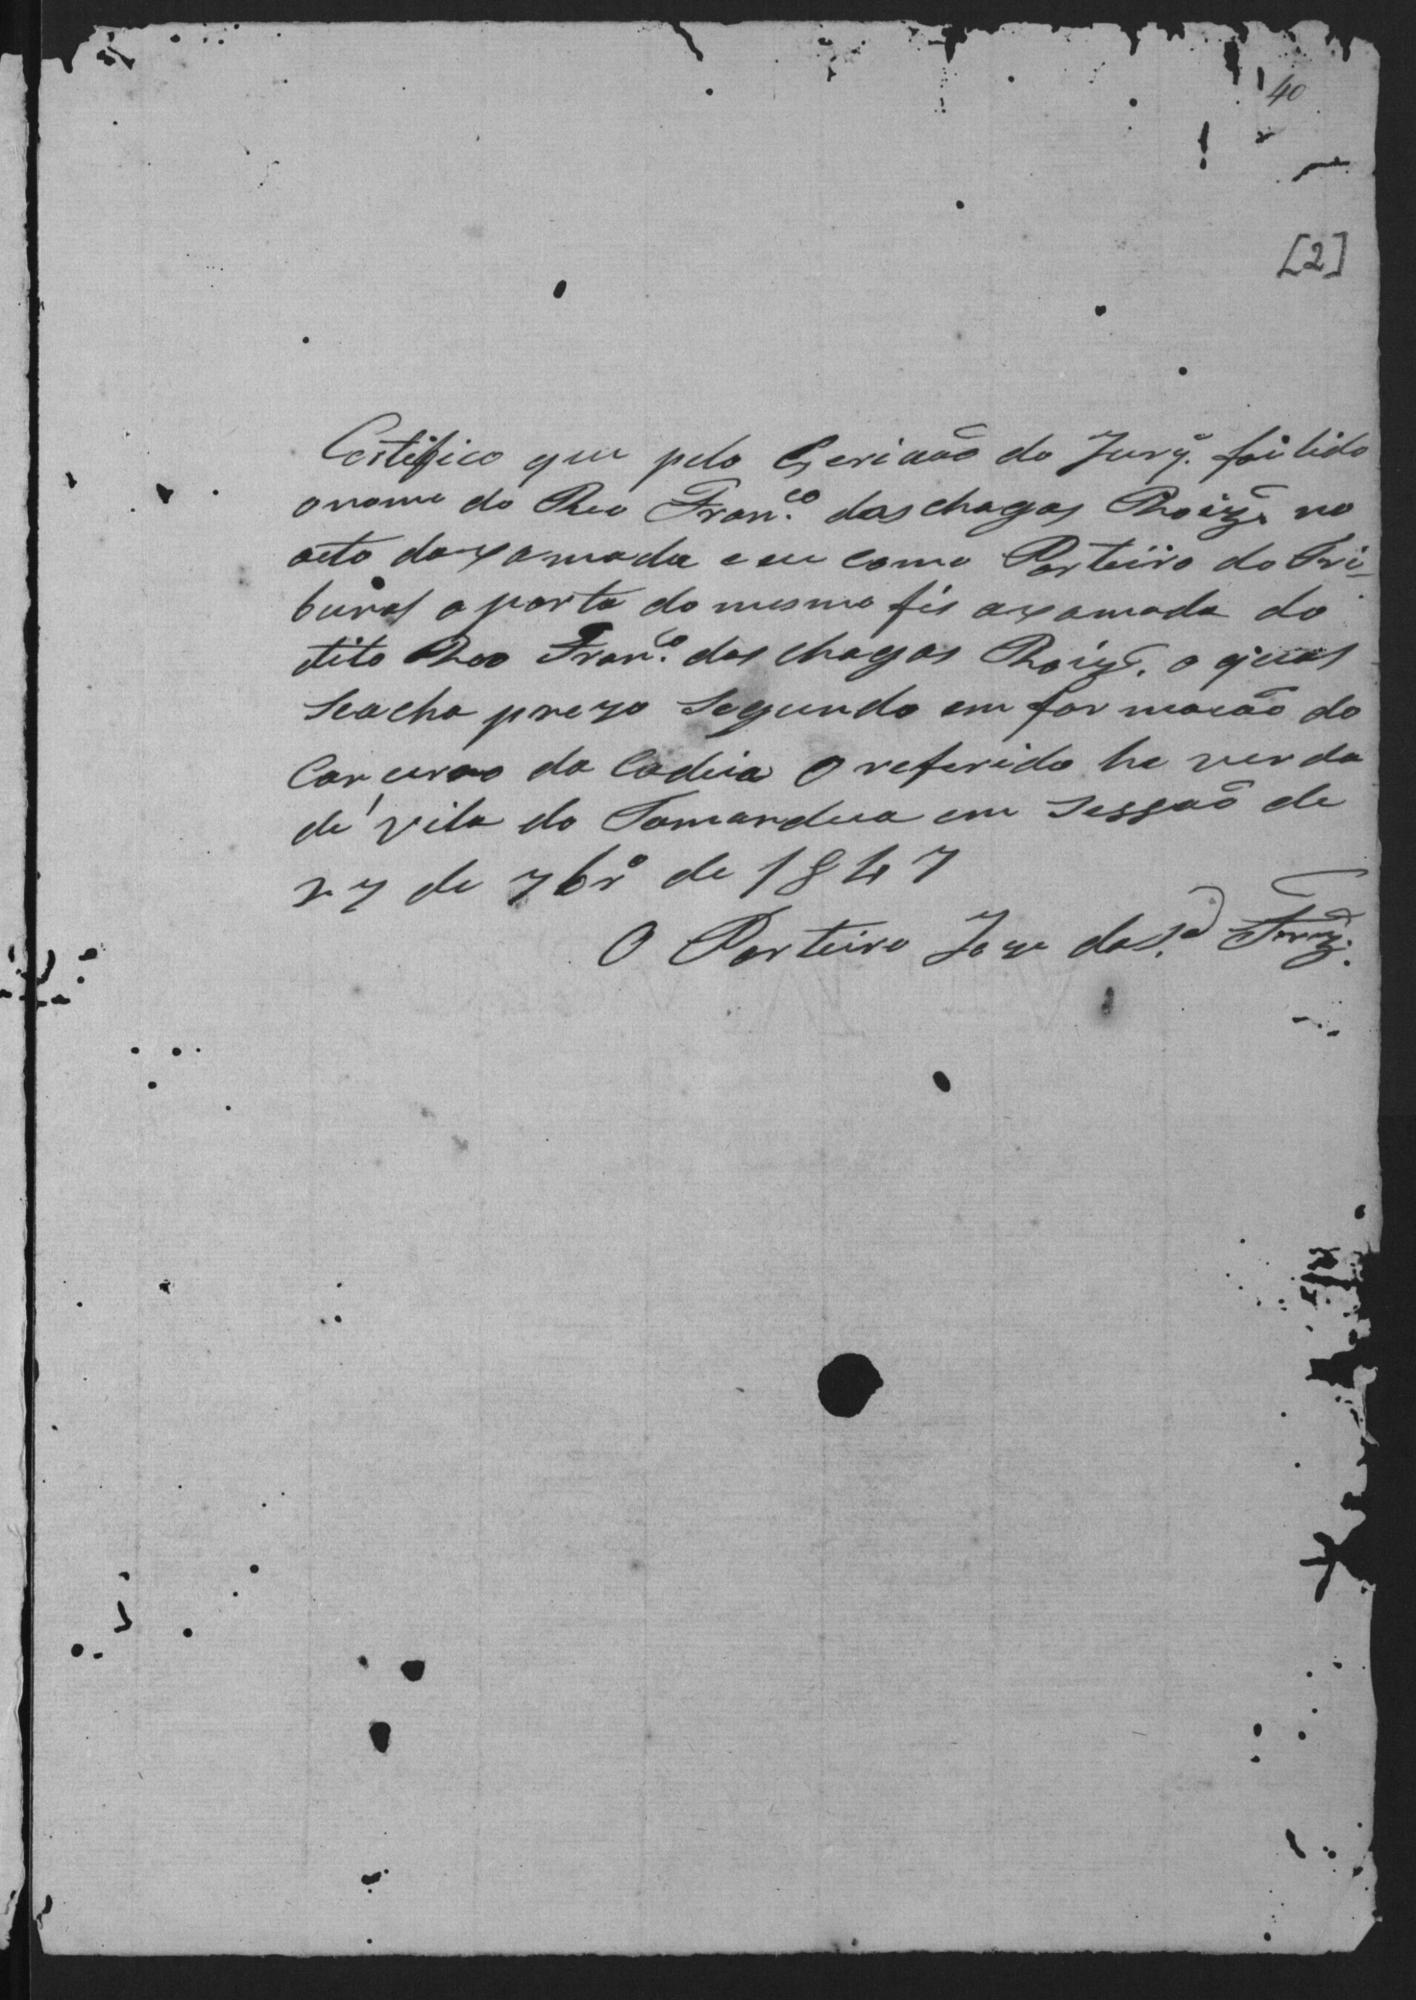 40
[2]
Certifico que pelo Escrivão do Jury. foi lido
o nome do Reo Fran.co das chagas Roiz. no
acto da xamada e eu como Porteiro do Tri-
bunal a porta do mesmo fis axamada do
dito Reo Fran.co das chagas Roiz. o qual
seacha prezo segundo em formacão do
Carcereo da Cadeia O referido he verda
de vila do Tamandua em Sessão de
27 de 7br.o de 1847
O Porteiro Joze da S.a